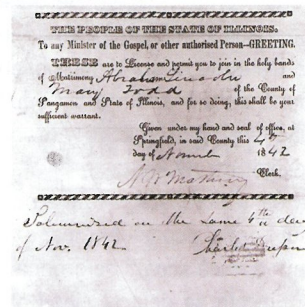 THE PEOPLE OF THE STATE OF ILLINOIS.
To any Minister of the Gospel, or other authorised Person--GREETING.
THESE are to License and permit you to join in the holy bands
of Matrimony Abraham Lincoln and
Mary Todd of the County of
Sangamon and State of Illinois, and for so doing, this shall be your
sufficient warrant.
Given under my hand and seal of office, at
Springfield, in said County this 4th
day of 1842
Clerk.
Solemnized on the same 4th day
of Nov. 1842 Charles